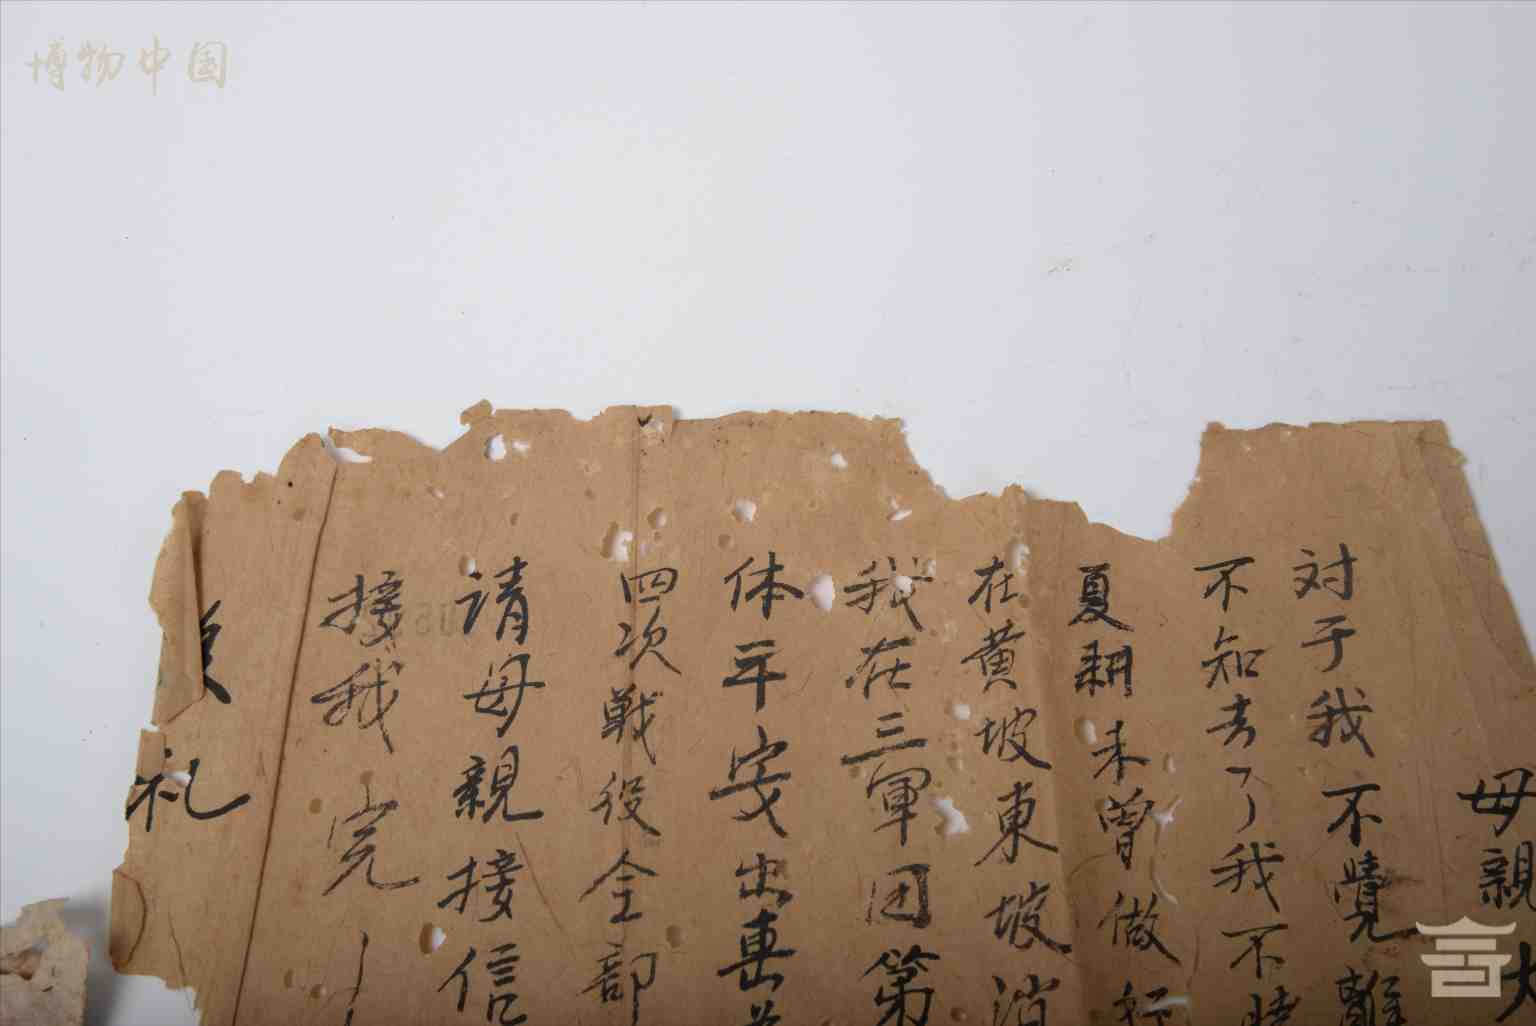 博物中国
母親大
対于我不覺離
不知去了我不曉
夏耕未曾做好
在黄坡東坡消
我在三軍团第
体平安出
四次戦役全部
请母親接信
接我完
礼